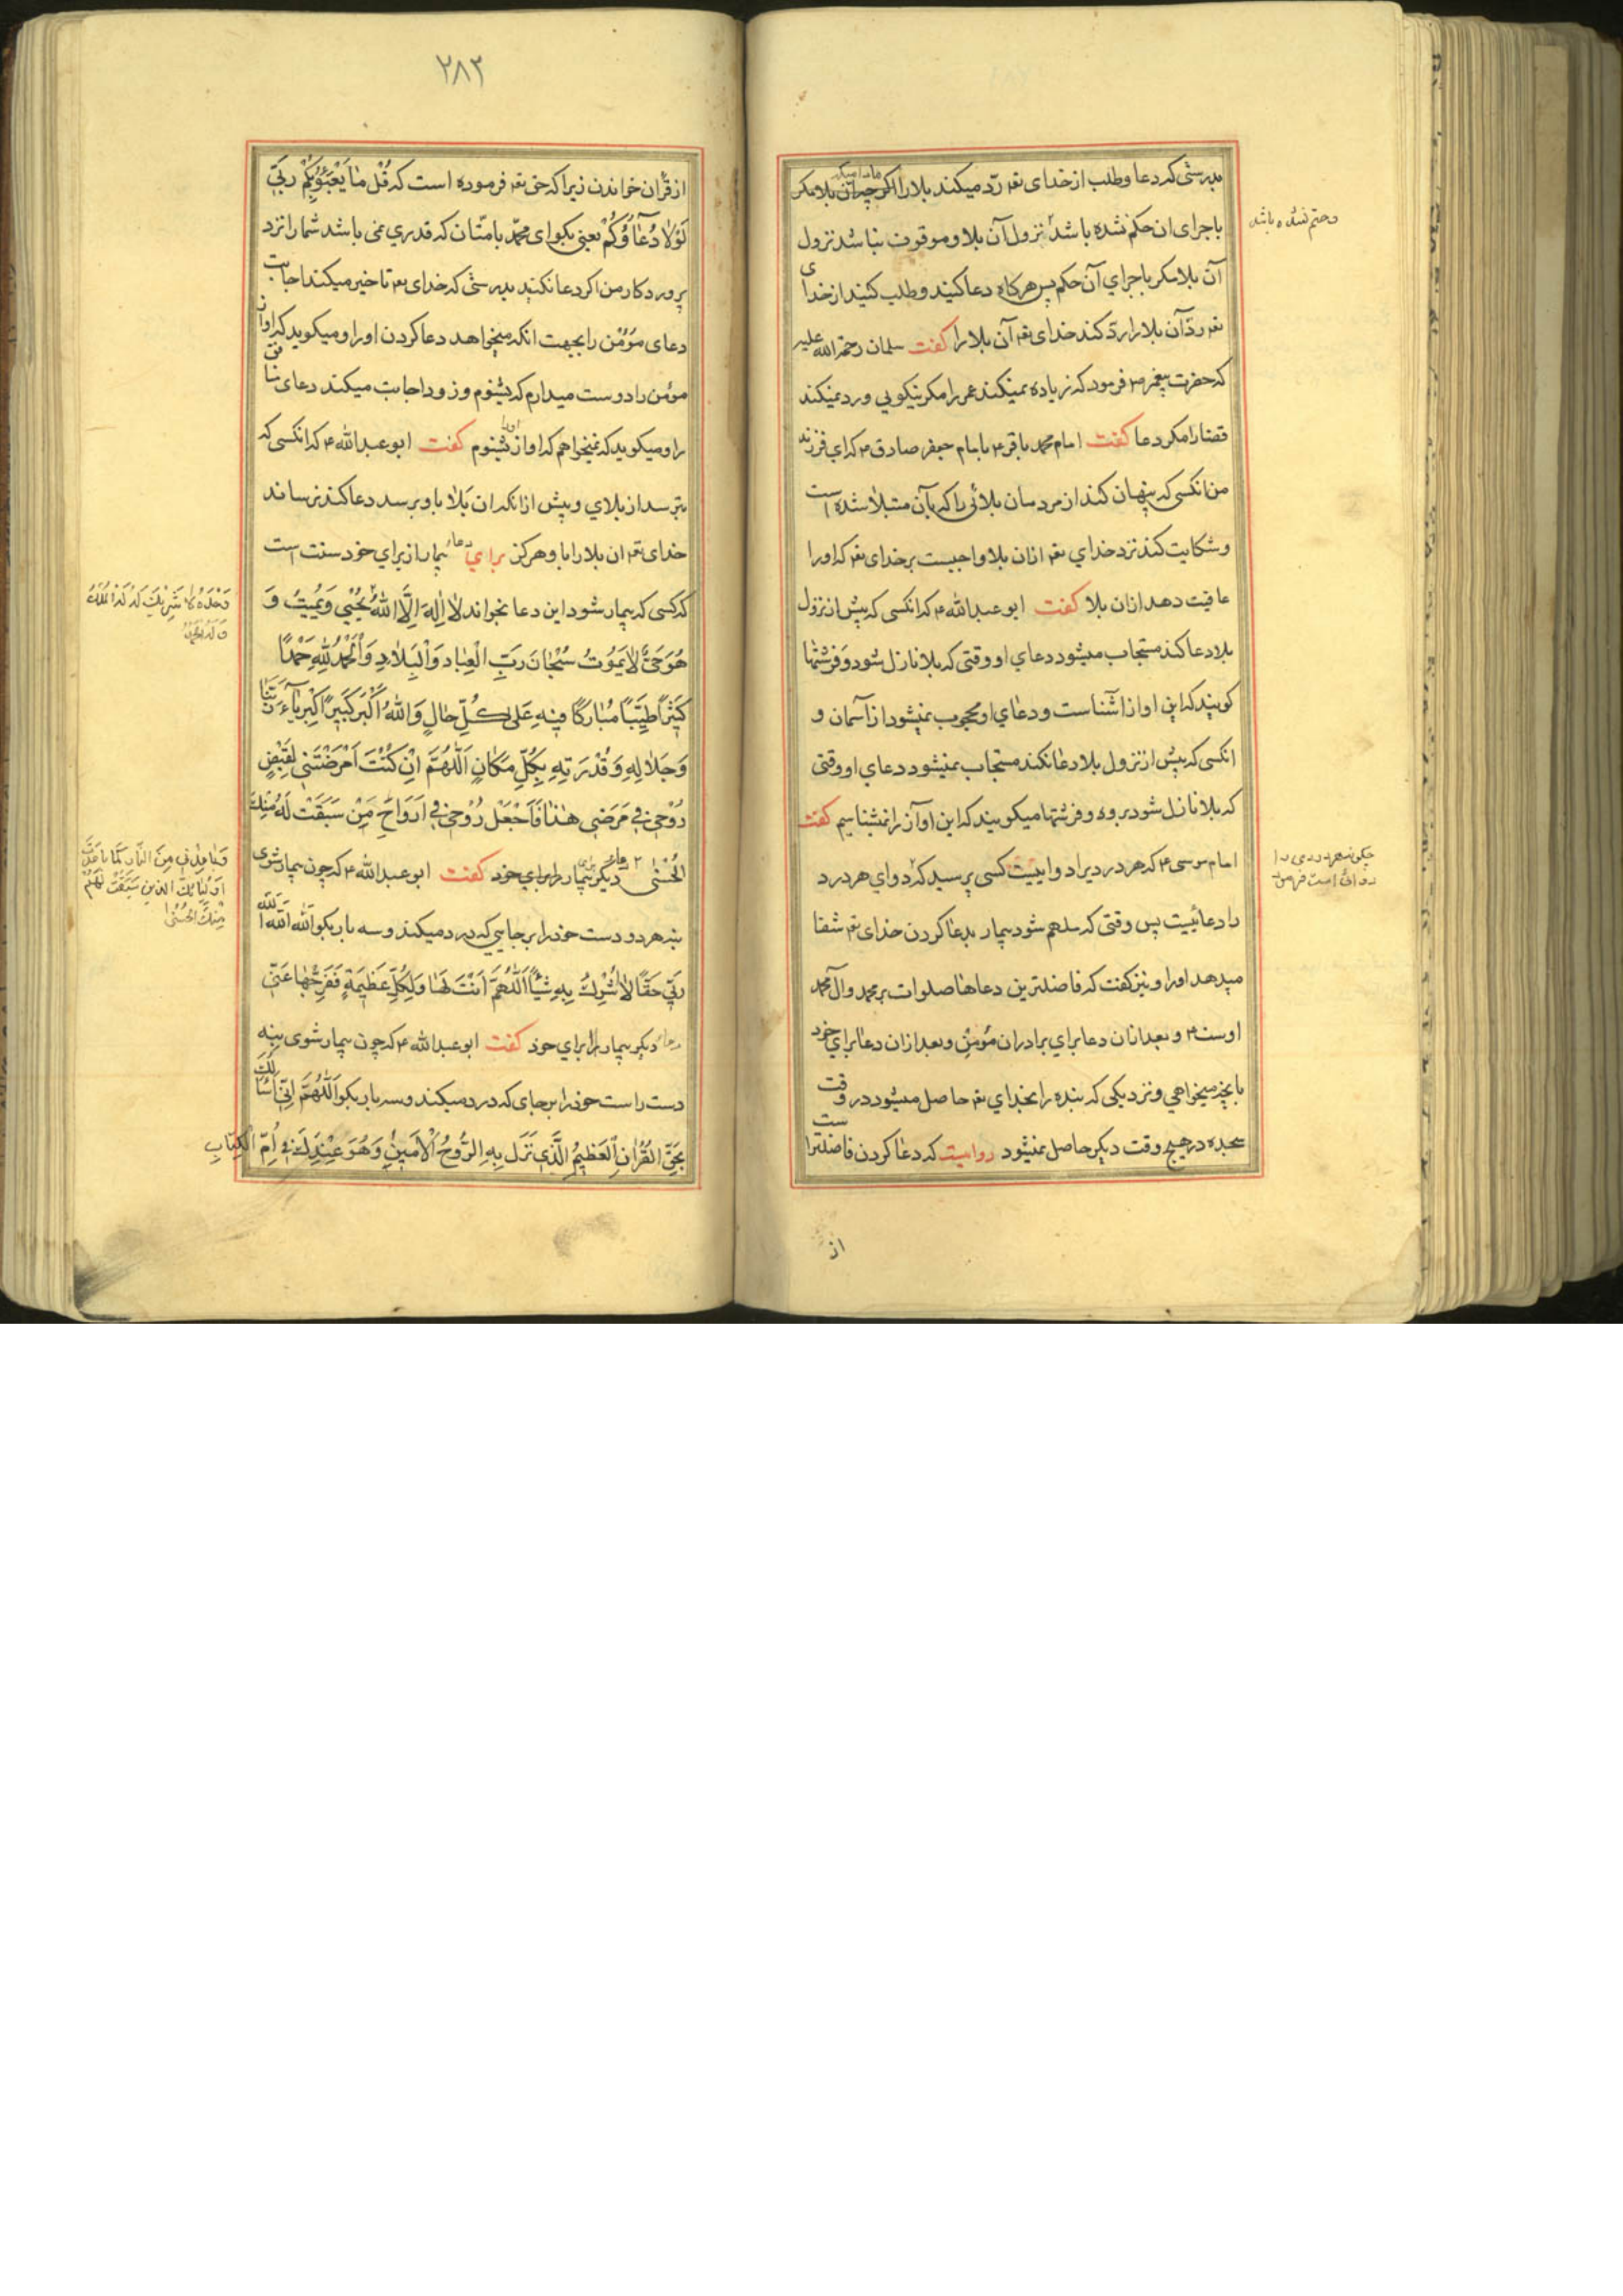 بدرستی که دعا و طلب از خدای تعه رد میکند بلا را اگر چه آن بلا مکر
باجرای ان حکم نشده باشد نزول آن بلا و موقوف نباشد نزول
و حتم نشده باشد
آن بلا مکر باجرای آن حکم پس هرکاه دعا کنید و طلب کنید از خدای
تعه رد آن بلا را رد کند خدای تعه آن بلا را کفت سلمان رحمة الله علیه
که حضرت پیغمبر ص فرمود که زیاده نمیکند عمر را مکر نیکویی و رد نمیکند
قضا را مکر دعا کفت امام محمد باقر ع بامام جعفر صادق ع که ای فرزند
من انکسی که پنهان کند از مردمان بلائی را که بآن مبتلا شده است
و شکایت کند نزد خدای تعه ازان بلا واجبست بر خدای تعه که او را
عافیت دهد ازان بلا کفت ابو عبد الله ع که انکسی که پیش از نزول
بلا دعا کند مستجاب میشود دعای او وقتی که بلا نازل شود و فرشتها
کویند که این اواز اشناست و دعای او محجوب نمیشود از آسمان و
انکسی که پیش از نزول بلا دعا نکند مستجاب نمیشود دعای او وقتی
که بلا نازل شود برو و فرشتها میکویند که این اواز را نمیشناسیم کفت
امام موسی ع که هر درد را دواییست کسی پرسید که دوای هر درد
را دعائیست پس وقتی که ملهم شود بیمار بدعا کردن خدای تعه شفا
میدهد او را و نیز کفت که فاضلترین دعاها صلوات بر محمد و آل محمد
اوست و بعد ازان دعا برای برادران مؤمن و بعد ازان دعا برای خود
بانچه میخواهی و نزدیکی که بنده را بخدای تعه حاصل میشود در وقت
سجده در هیچ وقت دیکر حاصل نمیشود روایت که دعا کردن فاضلتر است
از
۲۸۳
از قرآن خواندن زیرا که حق تعه فرموده است که قُلْ مَا يَعْبَؤُ بِكُمْ رَبِّي
لَوْلَا دُعَاؤُكُمْ یعنی بکو ای محمد بامتان که قدری نمی باشد شما را نزد
پروردکار من اکر دعا نکنید بدرستی که خدای تعه تاخیر میکند اجابت
دعای مؤمن را بجهت انکه میخواهد دعا کردن او را و میکوید که اواز
مؤمن را دوست میدارم که بشنوم و زود اجابت میکند دعای منافق
را و میکوید که نمیخواهم که اواز او را بشنوم کفت ابو عبد الله ع که انکسی که
بترسد از بلای و پیش از انکه ان بلا باو برسد دعا کند نرساند
خدای تعه ان بلا را باو هرکز برای دعاء بیمار از برای خود سنت است
که کسی که بیمار شود این دعا بخواند لَا إِلَهَ إِلَّا اللهُ يُحْيِي وَيُمِيتُ وَ
وَحْدَهُ لَا شَرِيكَ لَهُ لَهُ الْمُلْكُ
وَلَهُ الْحَمْدُ
هُوَ حَيٌّ لَا يَمُوتُ سُبْحَانَ رَبِّ الْعِبَادِ وَالْبِلَادِ وَالْحَمْدُ لِلَّهِ حَمْدًا
كَثِيرًا طَيِّبًا مُبَارَكًا فِيهِ عَلَى كُلِّ حَالٍ وَاللهُ أَكْبَرُ كَبِيرًا كِبْرِيَاءَ رَبِّنَا
وَجَلَالِهِ وَقُدْرَتِهِ بِكُلِّ مَكَانٍ اَللَّهُمَّ اِنْ كُنْتَ اَمْرَضْتَنِي لِقَبْضِ
رُوحِي فِي مَرَضِي هَذَا فَاجْعَلْ رُوحِي فِي اَرْوَاحِ مَنْ سَبَقَتْ لَهُ مِنْكَ
الْحُسْنَى دعاء دیکر بیمار را برای خود کفت ابو عبد الله ع که چون بیمار شوی
وَبَاعِدْنِي مِنَ النَّارِ كَمَا بَاعَدْتَ
اَوْلِيَائَكَ الَّذِينَ سَبَقَتْ لَهُمْ
مِنْكَ الْحُسْنَى
بنه هر دو دست خود را بر جایی که درد میکند و سه بار بکو اَللهُ اَللهُ اَللهُ
رَبِّي حَقًّا لَا اُشْرِكُ بِهِ شَيْئًا اَللَّهُمَّ اَنْتَ لَهَا وَلِكُلِّ عَظِيمَةٍ فَفَرِّجْهَا عَنِّي
دعاء دیکر بیمار را برای خود کفت ابو عبد الله ع که چون بیمار شوی بنه
دست راست خود را بر جای که درد میکند و سه بار بکو اَللَّهُمَّ اِنِّي اَسْأَلُكَ
بِحَقِّ الْقُرْآنِ الْعَظِيمِ الَّذِي نَزَلَ بِهِ الرُّوحُ الْأَمِينُ وَهُوَ عِنْدَكَ فِي اُمِّ الْكِتَابِ